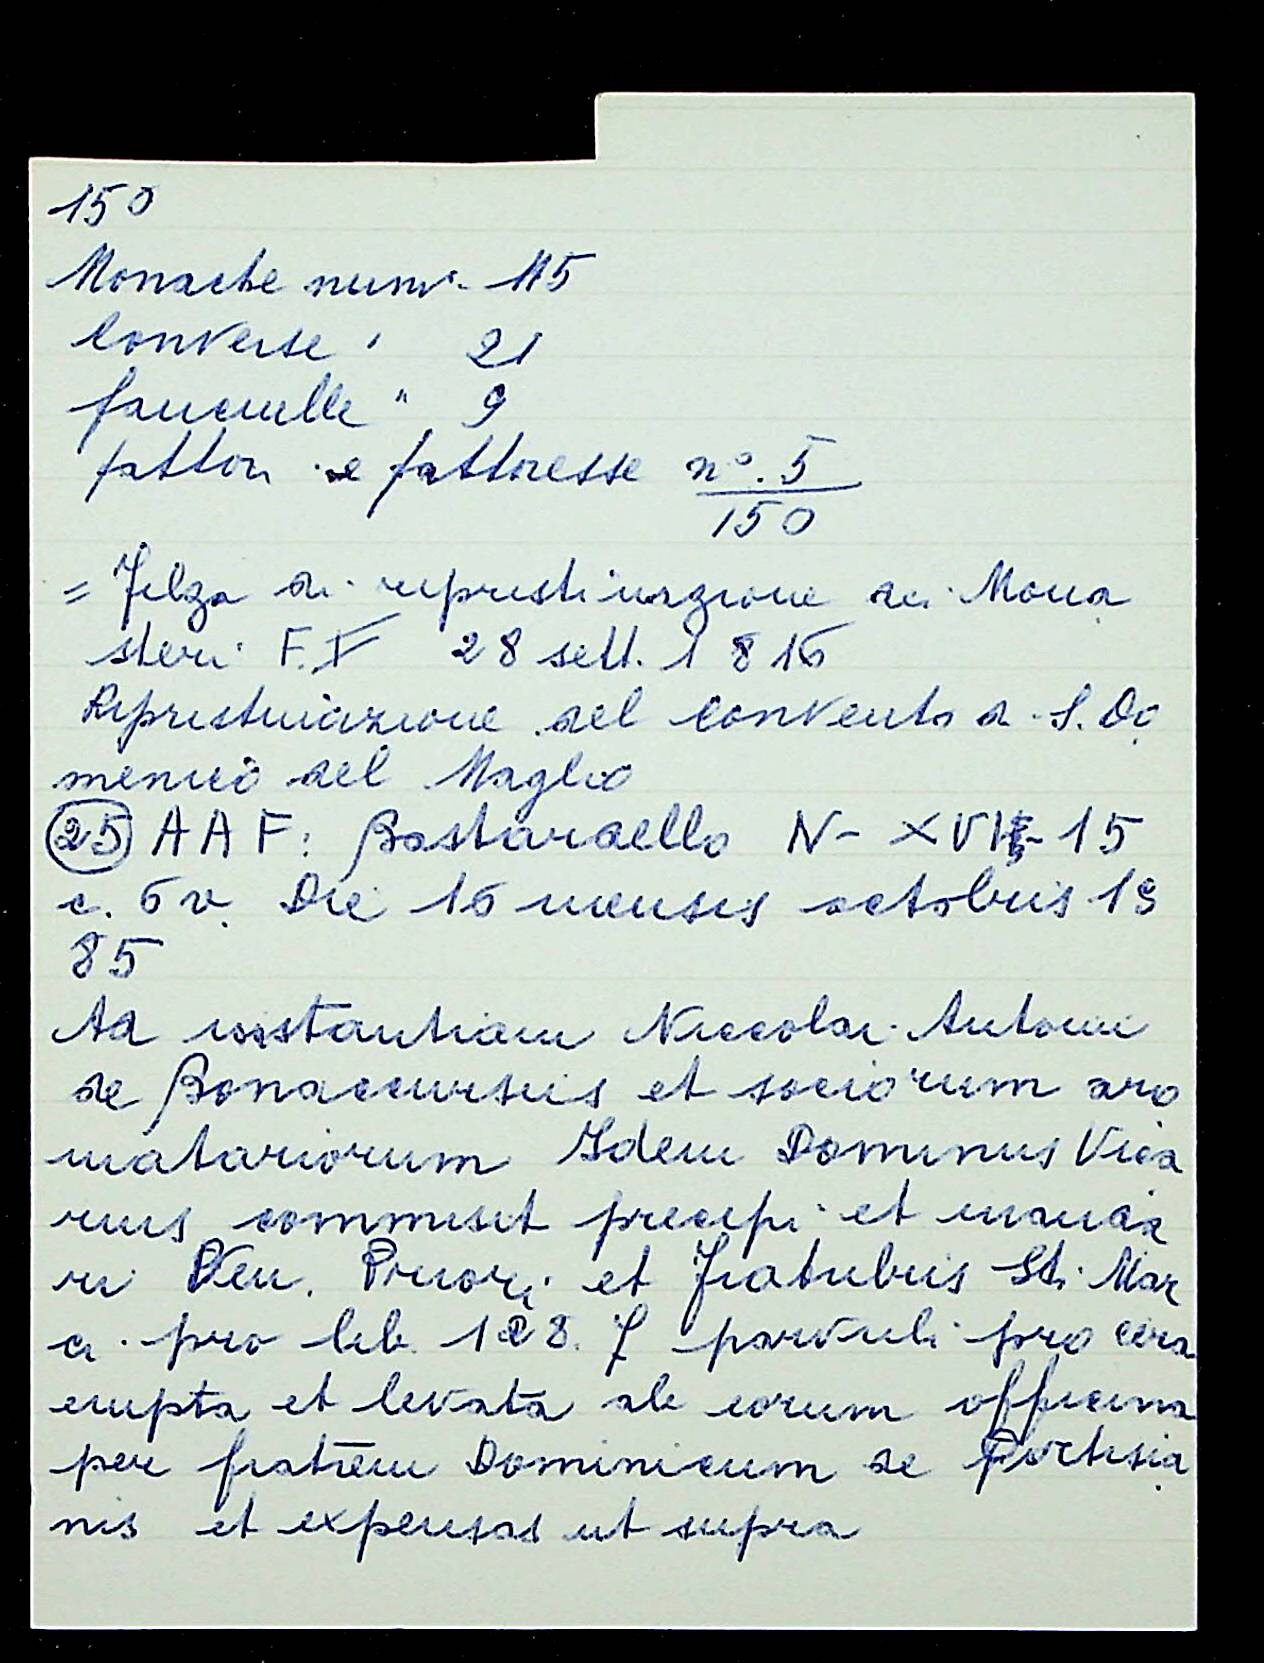 150
Monache num°. 115
Converse " 21
fanciulle " 9
fattori e fattoresse n°. 5
150
= Filza di ripristinazione dei Mona
steri F. V 28 sett. 1816
Ripristinazione del Convento di S. Do
menico del Maglio
(25) AAF: Bastardello N- XVII- 15
c. 6 v. Die 16 mensis octobris 19
85
Ad instantiam Niccolai Antonii
de Bonaccursiis et sociorum aro
matariorum Idem Dominus Vica
rius commisit precipi et manda
ri Ven. Priori et fratribus Sti Mar
ci pro lib. 128. 7 parvuli pro cera
empta et levata ab eorum officina
per fratrem Dominicum de
nis et expensas ut supra